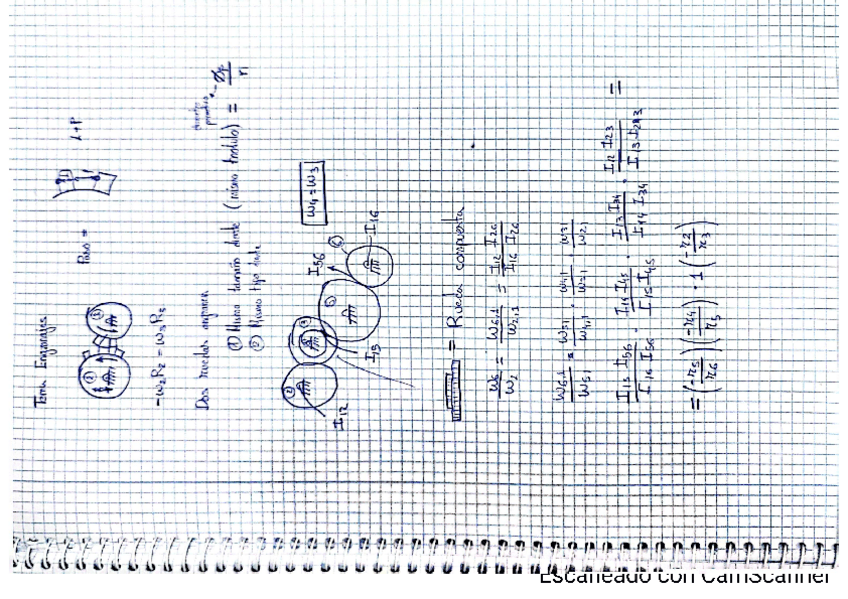 Tema Engranajes
Paso = L+P
-ω₂R₂ = ω₃R₃
Dos ruedas engranan
① Mismo tamaño diente (mismo modulo) =
② Mismo tipo diente
ω₄ = ω₃
I₁₂
I₁₅
I₅₆
I₁₆
= Rueda compuesta
ω₆/ω₂ = ω₆,₁/ω₂,₁ = I₁₂ I₂₆ / I₁₆ I₂₆
ω₆,₁/ω₅₁ · ω₅₁/ω₄,₁ · ω₄,₁/ω₃,₁ · ω₃₁/ω₂,₁
I₁₅ I₅₆ / I₁₆ I₅₆ · I₁₄ I₄₅ / I₁₅ I₄₅ · I₁₃ I₃₄ / I₁₄ I₃₄ · I₁₂ I₂₃ / I₁₃ I₂₃ =
= (-r₅/r₆) (-r₄/r₅) · 1 (-r₂/r₃)
Escaneado con CamScanner